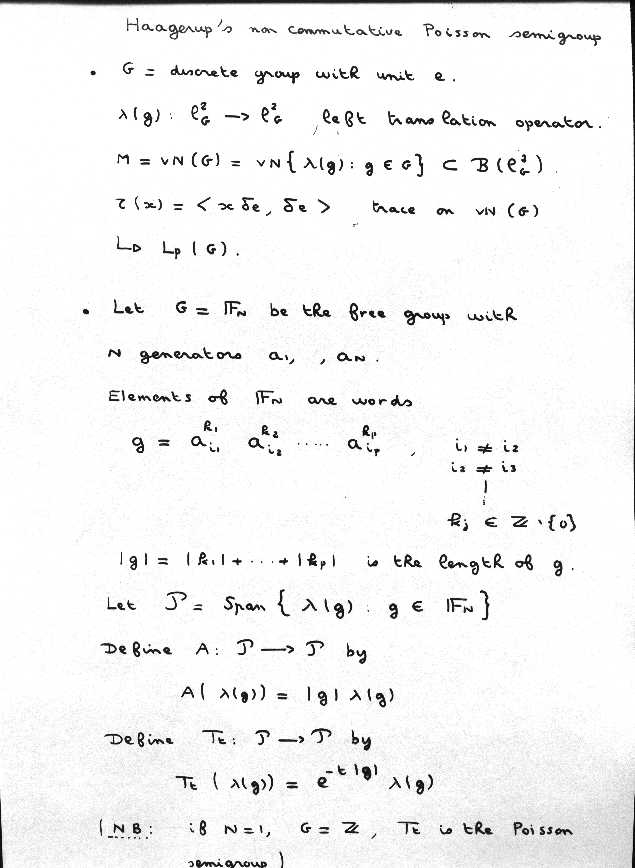 Haagerup's non commutative Poisson semigroup
• G = discrete group with unit e.
λ(g) : ℓ²_G → ℓ²_G left translation operator.
M = VN(G) = VN{λ(g) : g ∈ G} ⊂ B(ℓ²_G).
τ(x) = <x δe, δe> trace on VN(G)
↳ Lp(G).
• Let G = 𝔽_N be the free group with
N generators a₁, , a_N.
Elements of 𝔽_N are words
g = a_{i₁}^{k₁} a_{i₂}^{k₂} ····· a_{i_p}^{k_p} , i₁ ≠ i₂
i₂ ≠ i₃
k_j ∈ ℤ \ {0}
|g| = |k₁| + ··· + |k_p| is the length of g.
Let 𝒫 = Span {λ(g) . g ∈ 𝔽_N}
Define A : 𝒫 → 𝒫 by
A(λ(g)) = |g| λ(g)
Define T_t : 𝒫 → 𝒫 by
T_t (λ(g)) = e^{-t|g|} λ(g)
(NB : if N=1, G = ℤ, T_t is the Poisson
semigroup)